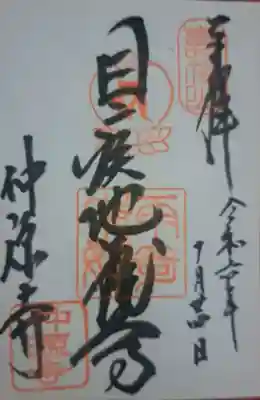 奉拝
令和六年
月廿四日
目疾地蔵尊
仲源寺